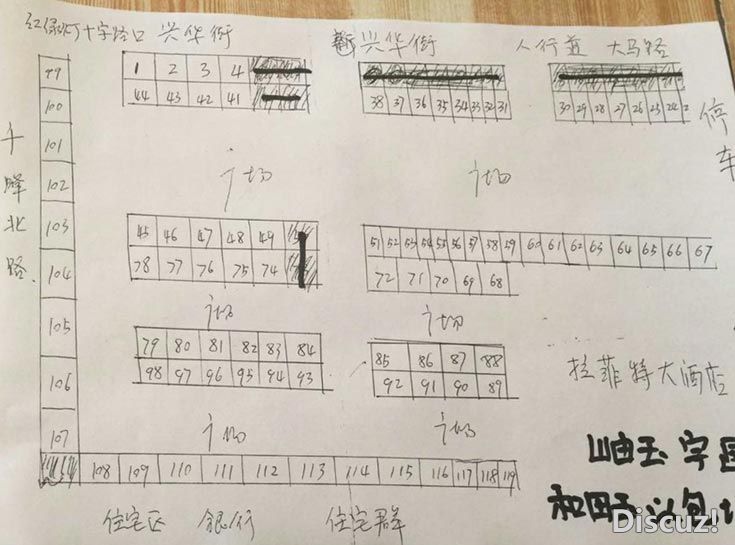 红绿灯十字路口 兴华街 兴华街 人行道 大马路
99 1 2 3 4
100 44 43 42 41 38 37 36 35 34 33 32 31 30 29 28 27 26 25 24 2
停
车
101
千峰北路
广场 广场
102
103 45 46 47 48 49 51 52 53 54 55 56 57 58 59 60 61 62 63 64 65 66 67
104 78 77 76 75 74 72 71 70 69 68
广场 广场
105
79 80 81 82 83 84 85 86 87 88
106 98 97 96 95 94 93 92 91 90 89
拉菲特大酒店
107 广场 广场
108 109 110 111 112 113 114 115 116 117 118 119
住宅区 银行 住宅群
Discuz!